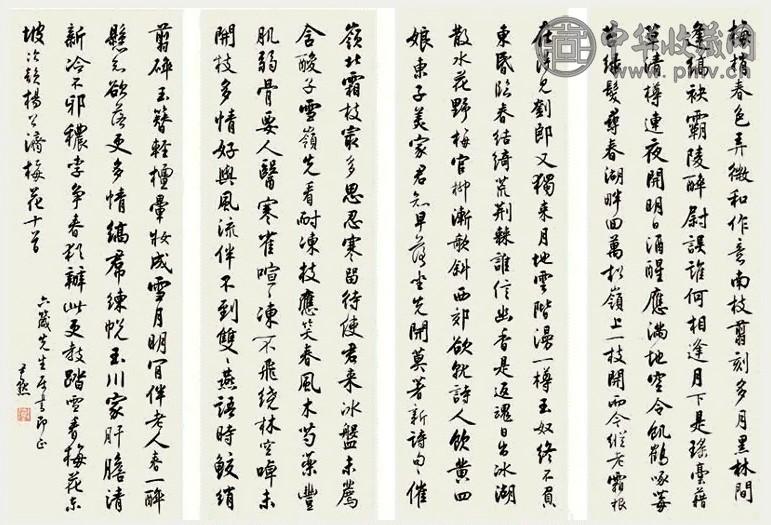 中华收藏网
www.phw.cn
梅梢春色弄微和作意南枝翦刻多月黑林間
逢縞袂霸陵醉尉誤誰何相逢月下是瑤臺藉
草清樽連夜開明日酒醒應滿地空令飢鶴啄莓
苔綠髮尋春湖畔回萬松嶺上一枝開而今縱老霜根
在得見劉郎又獨來月地雲階漫一樽玉奴終不負
東昏臨春結綺荒荆棘誰信幽香是返魂日出冰湖
散水花野梅官柳漸欹斜西郊欲就詩人飲黃四
娘東子美家君知早落坐先開莫著新詩句〻催
嶺北霜枝最多思忍寒留待使君來冰盤未薦
含酸子雪嶺先看耐凍枝應笑春風木芍藥豐
肌弱骨要人醫寒雀喧〻凍不飛繞林空啅未
開枝多情好與風流伴不到雙〻燕語時鮫綃
翦碎玉簪輕檀暈妝成雪月明肯伴老人春一醉
懸知欲落更多情縞裙練帨玉川家肝膽清
新冷不邪穠李争春猶辦此更教踏雪看梅花東
坡次韵楊公濟梅花十首
六箴先生屬書即正
尹默